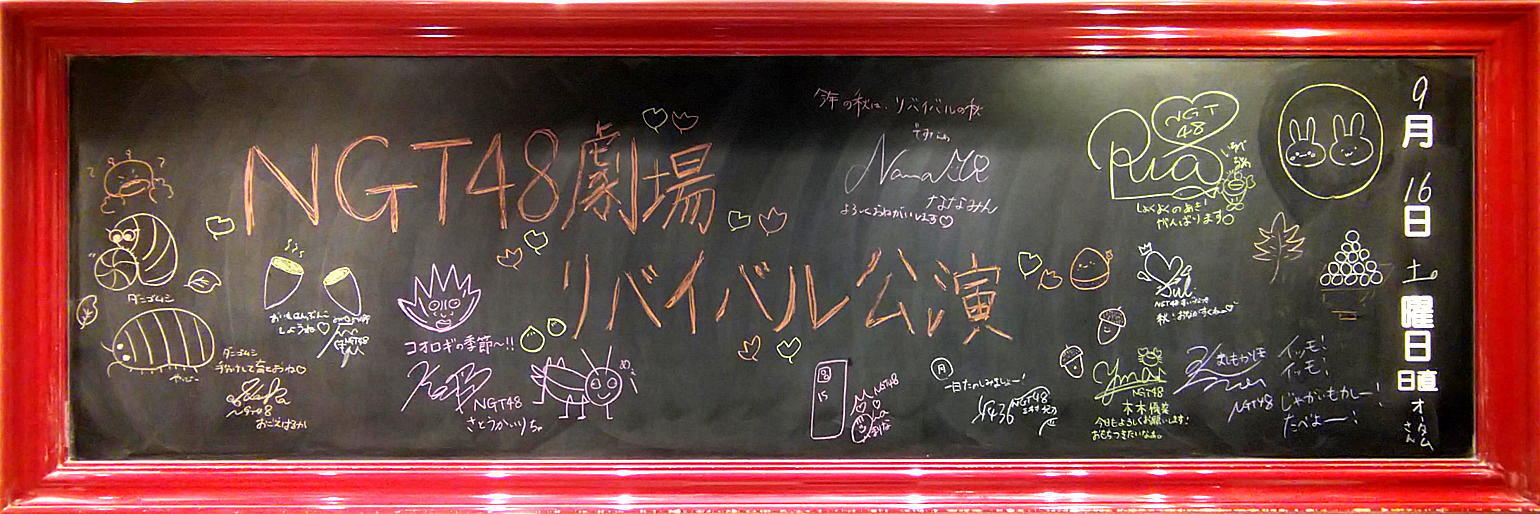 NGT48劇場
リバイバル公演
今年の秋は、リバイバルの秋
ですね
NamaMi♡
ななみん
よろしくおねがいします♡
NGT
48
Ria
しょくよくのあき!
がんばります○
9月16日 土曜日
日直
オータム
さん
ダンゴムシ
ダンゴムシ
手分けして育てようね♡
NGT48
おぎえはるか
おいもはんぶんこ
しようね♡
NGT48
コオロギの季節〜!!
NGT48
さとうかいりちゃ
15
NGT48
まりな
月
一日たのしみましょー!
NGT48
NGT48
秋!おなかすくねー♡
NGT48
本木優菜
今日もよろしくお願いします!
おもちつきたいなぁ。
ましもかほ
NGT48
イッモ!
イッモ!
じゃがいもカレー!
たべよー!